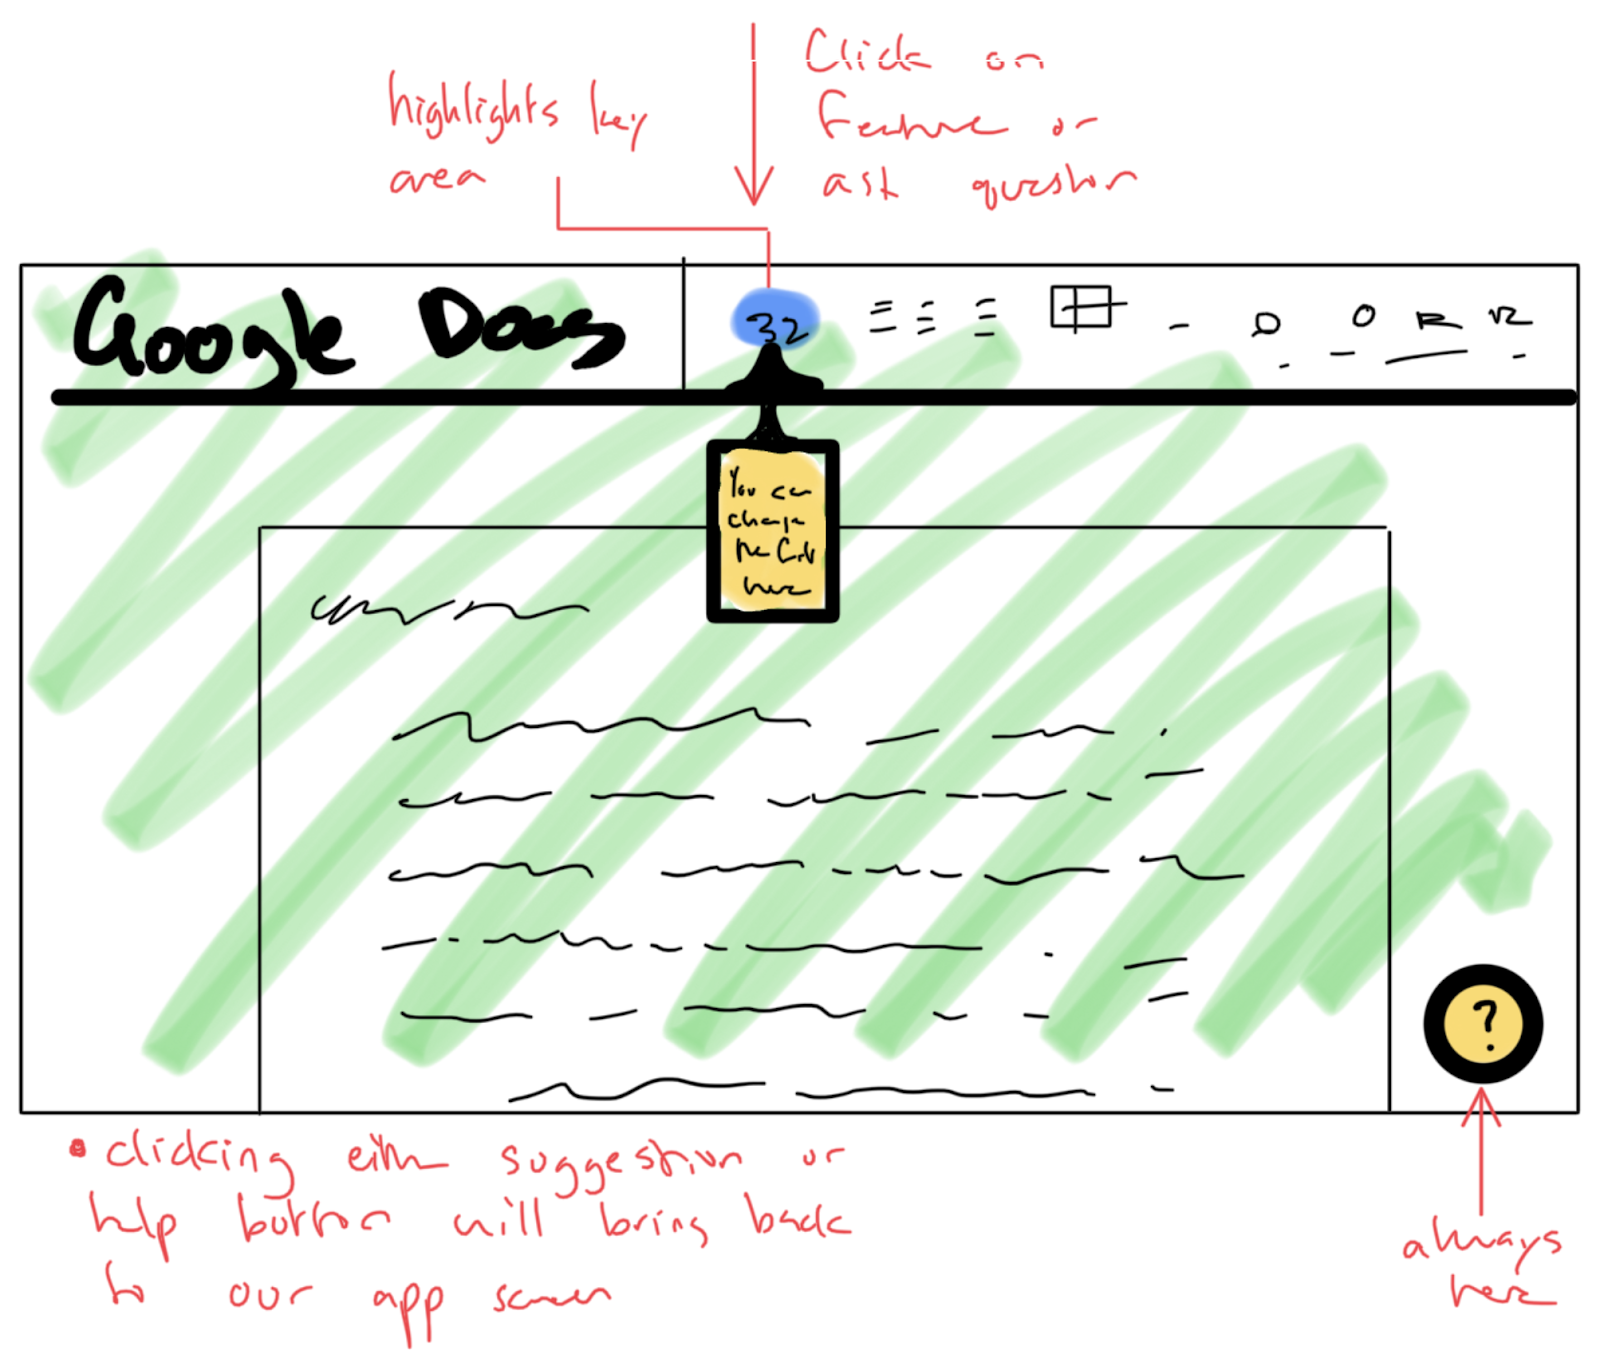 Click on
highlights key
feature or
area
ask question
Google Docs
32
You can
change
the
here
?
• clicking either suggestion or
help button will bring back
to our app screen
always
here